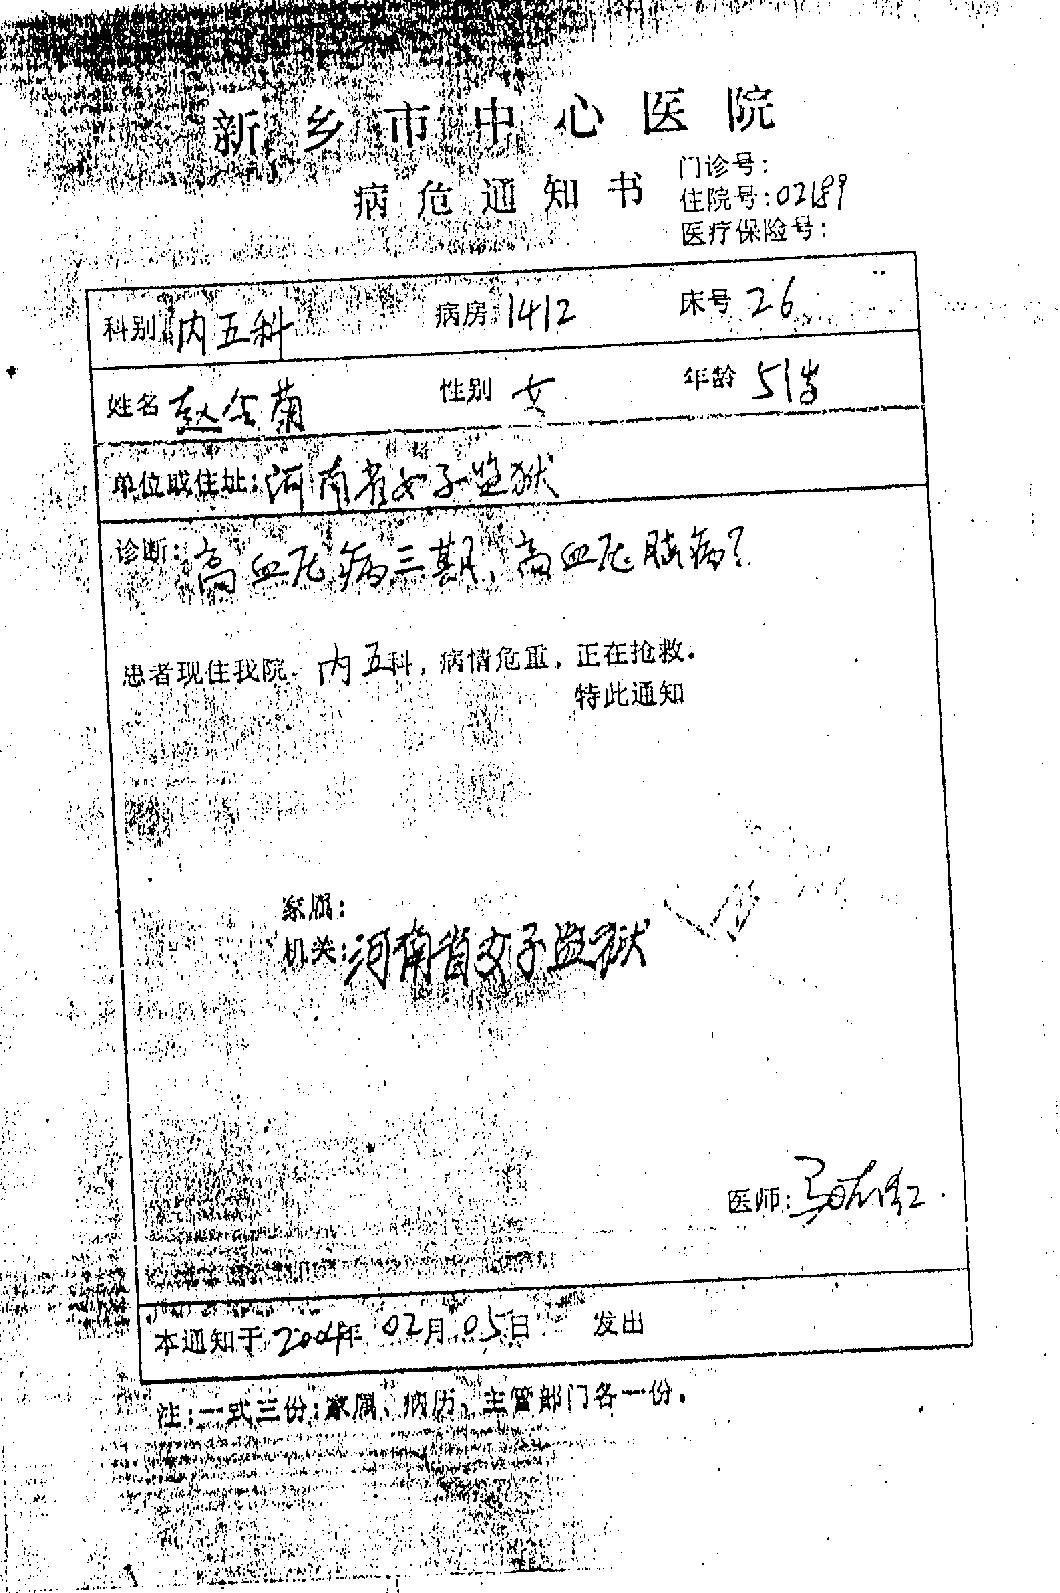 新乡市中心医院
病危通知书
门诊号:
住院号:02189
医疗保险号:
科别 内五科 病房 1412 床号 26
姓名 赵金菊 性别 女 年龄 51岁
单位或住址:河南省女子监狱
诊断:高血压病三期、高血压脑病?
患者现住我院 内五科,病情危重,正在抢救。
特此通知
家属:
机关:河南省女子监狱
医师:
本通知于 2004年 02月 05日 发出
注:一式三份:家属、病历、主管部门各一份。